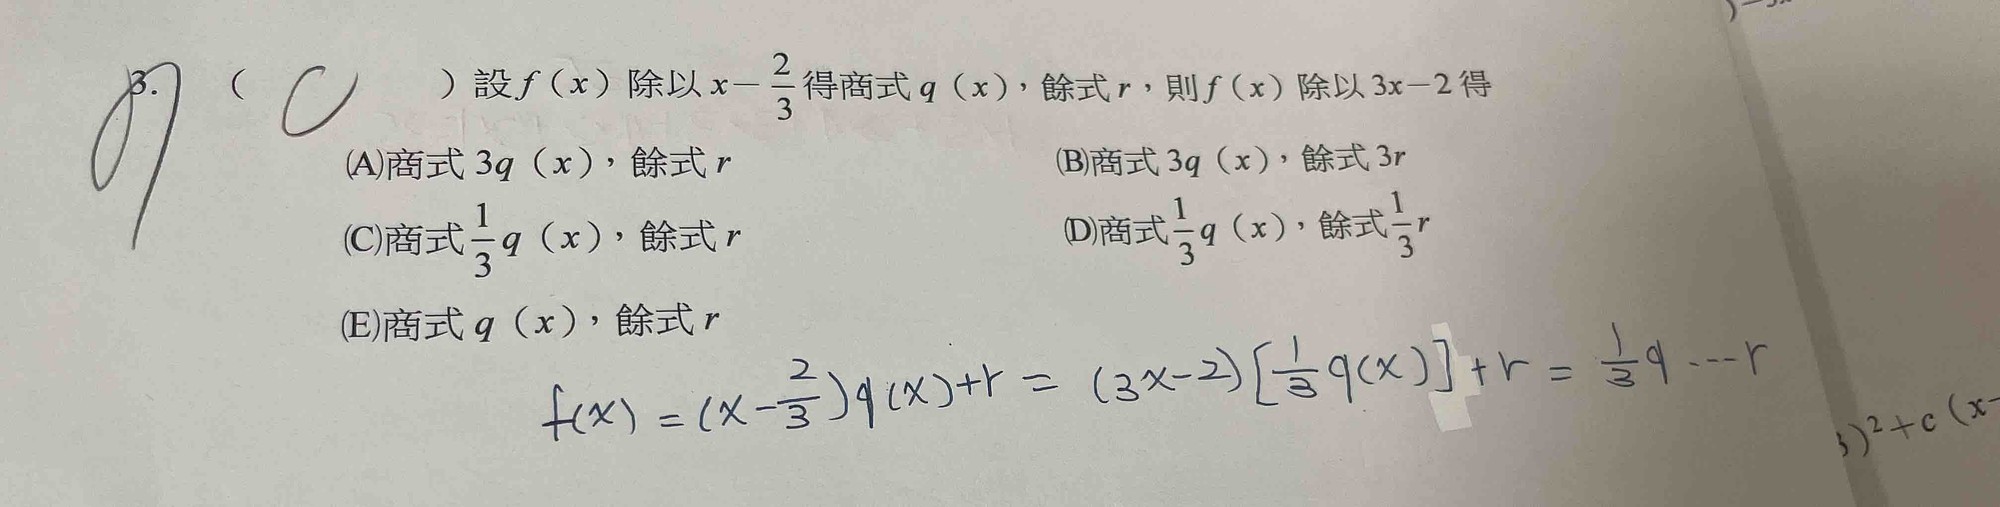 3. ( C ) 設 f(x) 除以 x－2/3 得商式 q(x)，餘式 r，則 f(x) 除以 3x－2 得
(A)商式 3q(x)，餘式 r (B)商式 3q(x)，餘式 3r
(C)商式 1/3 q(x)，餘式 r (D)商式 1/3 q(x)，餘式 1/3 r
(E)商式 q(x)，餘式 r
f(x) = (x-2/3)q(x)+r = (3x-2)[1/3 q(x)]+r = 1/3 q ... r
)²+c(x-